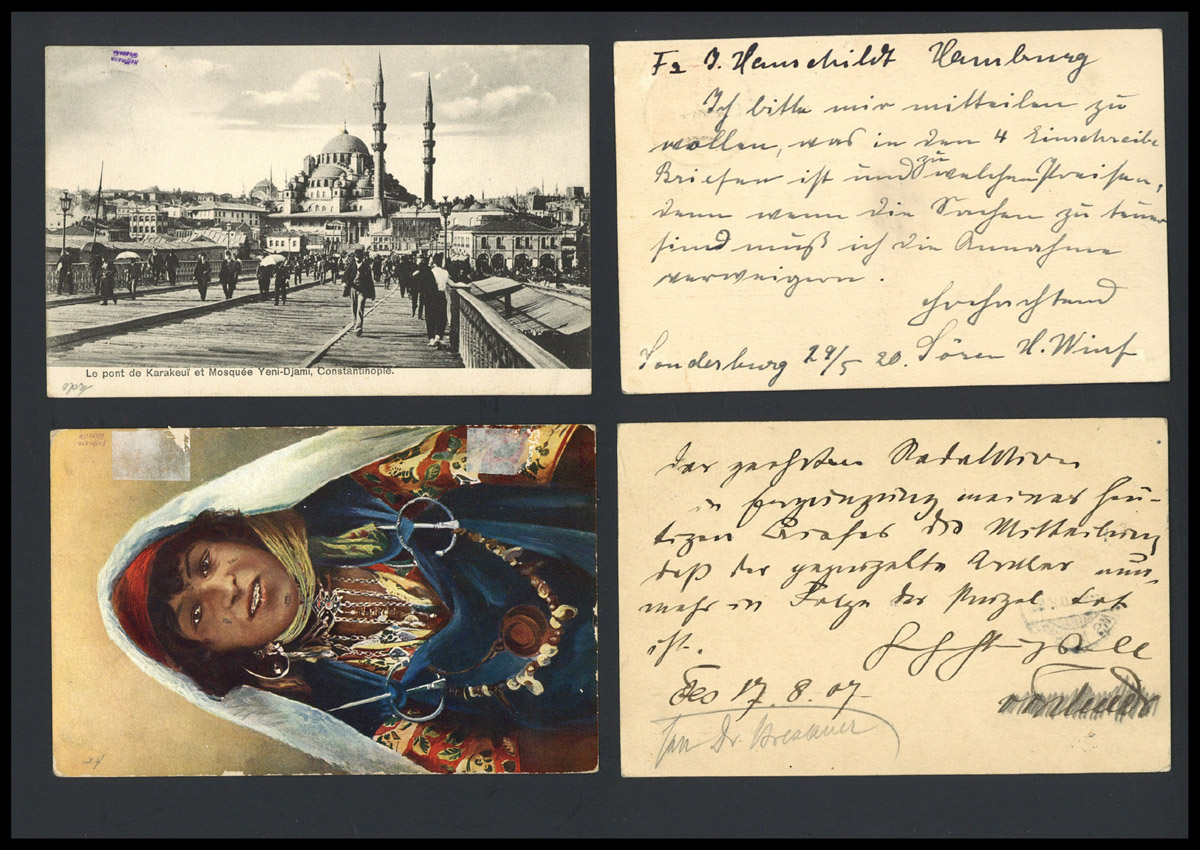 Le pont de Karakeuï et Mosquée Yeni-Djami, Constantinople.
Fa J. Hanschildt Hamburg
Ich bitte mir mitteilen zu
wollen, was in den 4 Einschreibe
Briefen ist und zu welchen Preisen,
denn wenn die Sachen zu teuer
sind muß ich die Annahme
verweigern.
Hochachtend
Sonderburg 29/5 20. Sören H.
Der geehrten Redaktion
in Ergänzung meines heu-
tigen Briefes die Mitteilung
daß der
mehr in Folge der
ist.
Fes 17.8.07